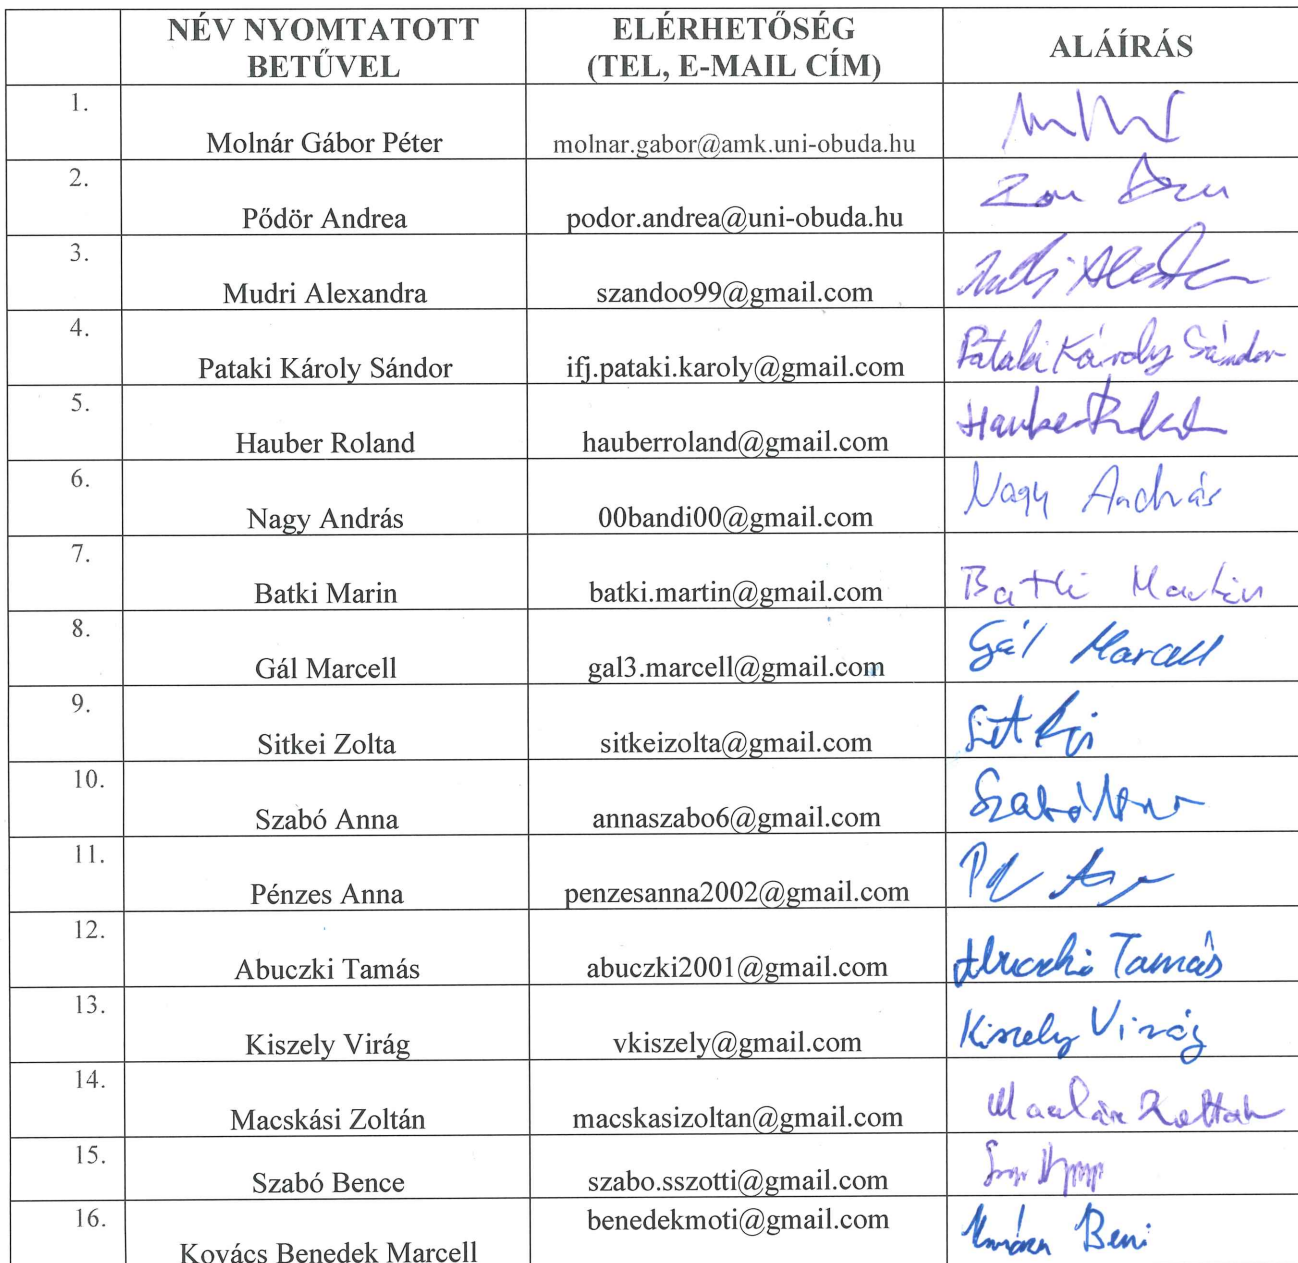 NÉV NYOMTATOTT
BETŰVEL
ELÉRHETŐSÉG
(TEL, E-MAIL CÍM)
ALÁÍRÁS
1.
Molnár Gábor Péter molnar.gabor@amk.uni-obuda.hu
2.
Pődör Andrea podor.andrea@uni-obuda.hu
3.
Mudri Alexandra szandoo99@gmail.com
4.
Pataki Károly Sándor ifj.pataki.karoly@gmail.com Pataki Károly Sándor
5.
Hauber Roland hauberroland@gmail.com Hauber
6.
Nagy András 00bandi00@gmail.com Nagy András
7.
Batki Marin batki.martin@gmail.com Batki Martin
8.
Gál Marcell gal3.marcell@gmail.com Gál Marcell
9.
Sitkei Zolta sitkeizolta@gmail.com
10.
Szabó Anna annaszabo6@gmail.com Szabó
11.
Pénzes Anna penzesanna2002@gmail.com
12.
Abuczki Tamás abuczki2001@gmail.com Abuczki Tamás
13.
Kiszely Virág vkiszely@gmail.com Kiszely Virág
14.
Macskási Zoltán macskasizoltan@gmail.com Zoltán
15.
Szabó Bence szabo.sszotti@gmail.com
16. benedekmoti@gmail.com
Kovács Benedek Marcell Beni